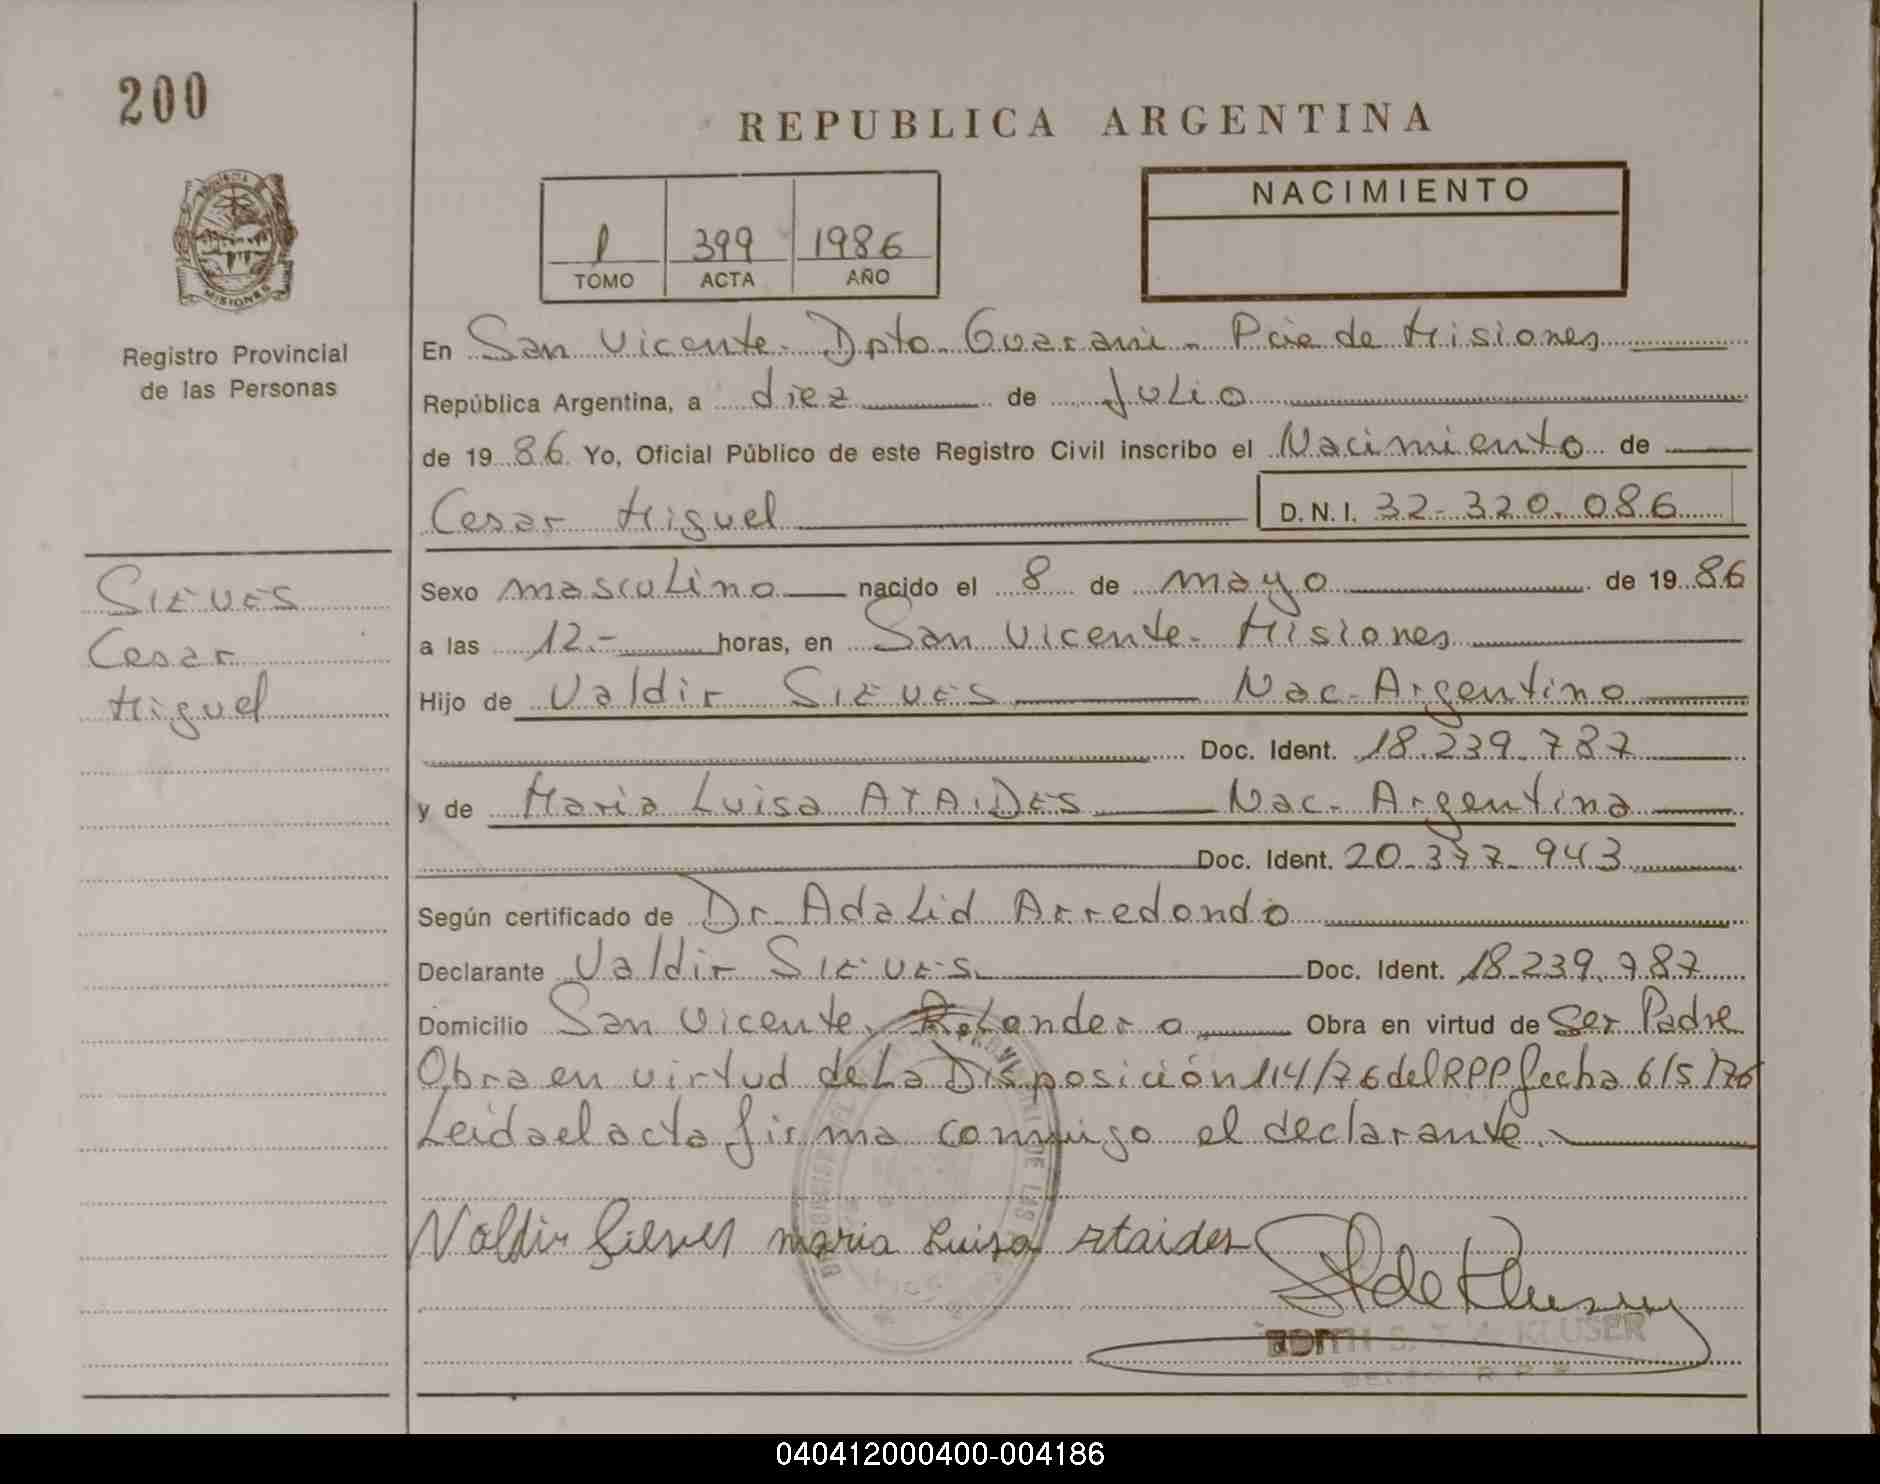 200
REPUBLICA ARGENTINA
NACIMIENTO
1 399 1986
TOMO ACTA AÑO
MISIONES
Registro Provincial
de las Personas
En San Vicente - Dpto Guarani - Pcia de Misiones
República Argentina, a diez de Julio
de 1986 Yo, Oficial Público de este Registro Civil inscribo el Nacimiento de
Cesar Miguel D.N.I. 32-320.086
SIEVES
Cesar
Miguel
Sexo masculino nacido el 8 de mayo de 1986
a las 12.- horas, en San Vicente - Misiones
Hijo de Valdir SIEVES Nac-Argentino
Doc. Ident. 18.239.787
y de Maria Luisa ATAIDES Nac- Argentina
Doc. Ident. 20-377-943
Según certificado de Dr. Adalid Arredondo
Declarante Valdir SIEVES Doc. Ident. 18.239.787
Domicilio San Vicente Obra en virtud de Ser Padre
Obra en virtud de La Disposición 114/76 del RPP fecha 6/5/76
Leida el acta firma conmigo el declarante.
Valdir Sieves maria Luisa Ataides
EDITH S. T. KLUSER
040412000400-004186